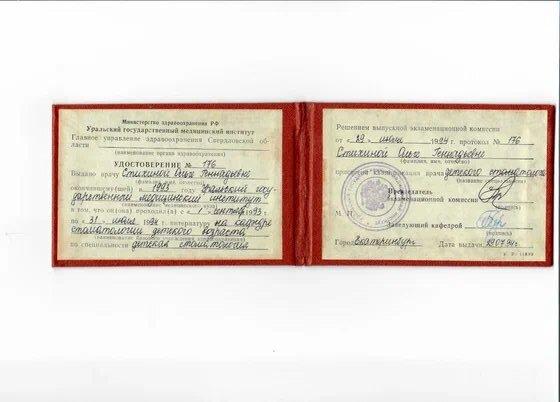 Министерство здравоохранения РФ
Уральский государственный медицинский институт
Главное управление здравоохранения Свердловской
области
(наименование органа здравоохранения)
УДОСТОВЕРЕНИЕ № 176
Выдано врачу Стихиной Ольге Геннадьевне
(фамилия, имя, отчество)
окончившему(шей) в 1993 году Уральский госу-
дарственный медицинский институт
в том, что он(она) проходил(а) с « 1 » сентяб 1993.
по « 31 » июля 1994 г. интернатуру на кафедре
стоматологии детского возраста
по специальности детская стоматология
Решением выпускной экзаменационной комиссии
от « 29 » июня 1994 г. протокол № 176
Стихиной Ольге Геннадьевне
(фамилия, имя, отчество)
присвоена квалификация врача детского стоматолога
Председатель
экзаменационной комиссии
(подпись)
М. П.
Заведующий кафедрой
(подпись)
Город Екатеринбург Дата выдачи